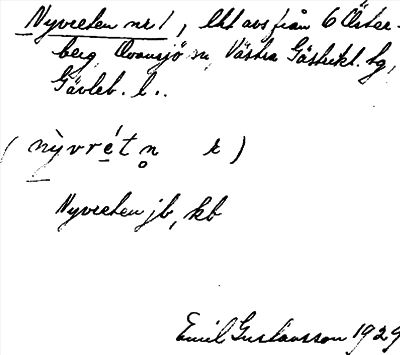 Nyvreten nr 1, lht avs från 6 Öster-
berg, Ovansjö sn, Västra Gästrikl. tg,
Gävleb. l..
(nỳvrét n̥ r)
Nyvreten jb, kb
Emil Gustavsson 1929